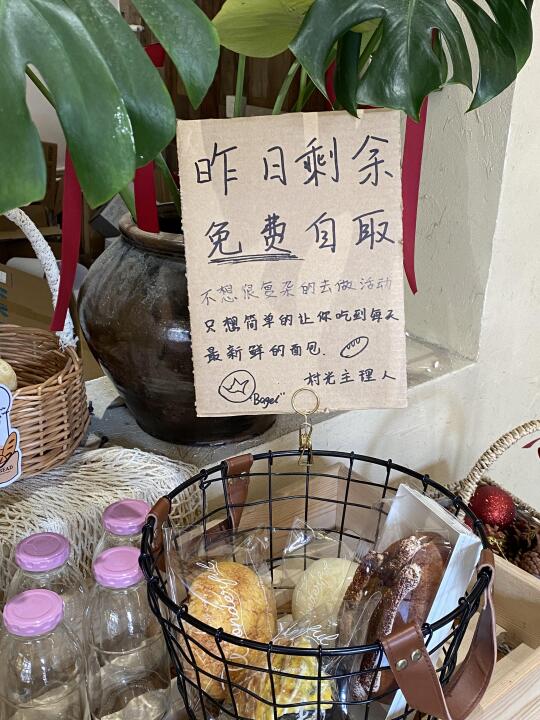 昨日剩余
免费自取
不想很复杂的去做活动
只想简单的让你吃到每天
最新鲜的面包.
"Bagel"
村光主理人
Wonderful